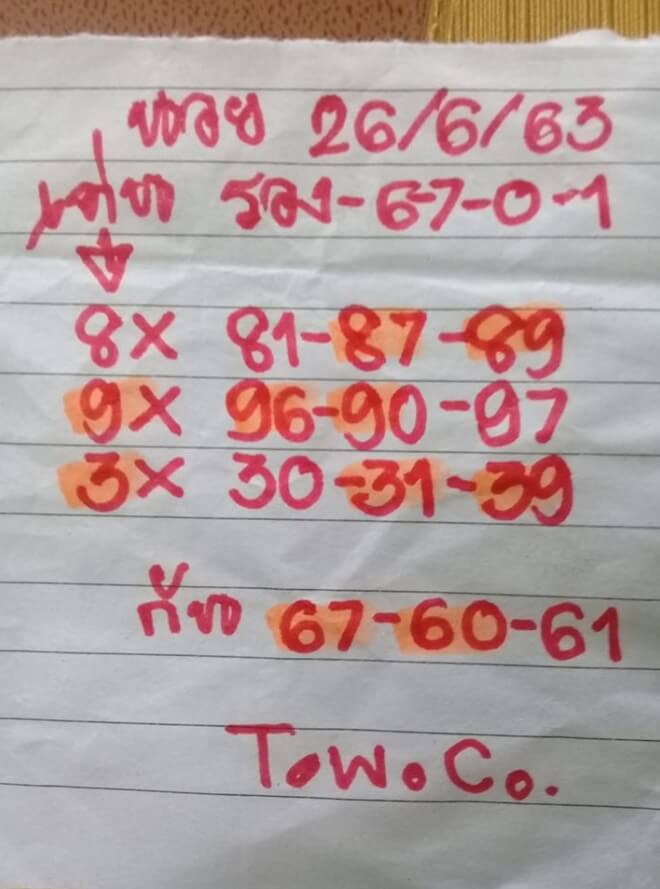 หวย 26/6/63
เด่น รอง-6-7-0-1
8x 81-87-89
9x 96-90-97
3x 30-31-39
กัน 67-60-61
T.W.Co.